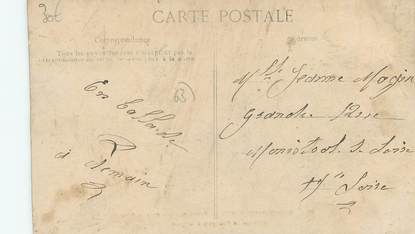 30€
CARTE POSTALE
Correspondance
63
En ballade
à Demain
Mlle Jeanne Magin
Grande Rue
Monistrol s. Loire
Hte Loire